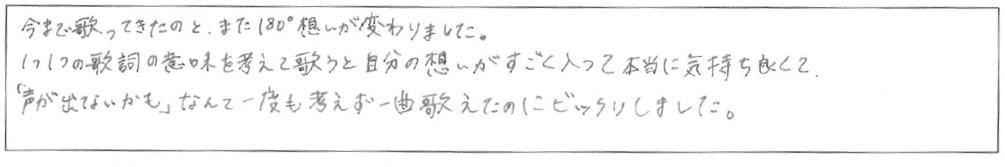 今まで歌ってきたのと、また180°想いが変わりました。
1つ1つの歌詞の意味を考えて歌うと自分の想いがすごく入って本当に気持ち良くて、
「声が出てないかも」なんて一度も考えず一曲歌えたのにビックリしました。